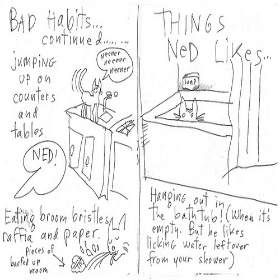 BAD Habits...
continued.......
jumping
up on
counters
and
tables
NEENER
NEENER
NEENER
NED!
Eating broom bristles,
raffia and paper.
pieces of
busted up
broom
THINGS
NED Likes...
Hanging out in
the bathtub! (When it's
empty. But he likes
licking water leftover
from your shower)